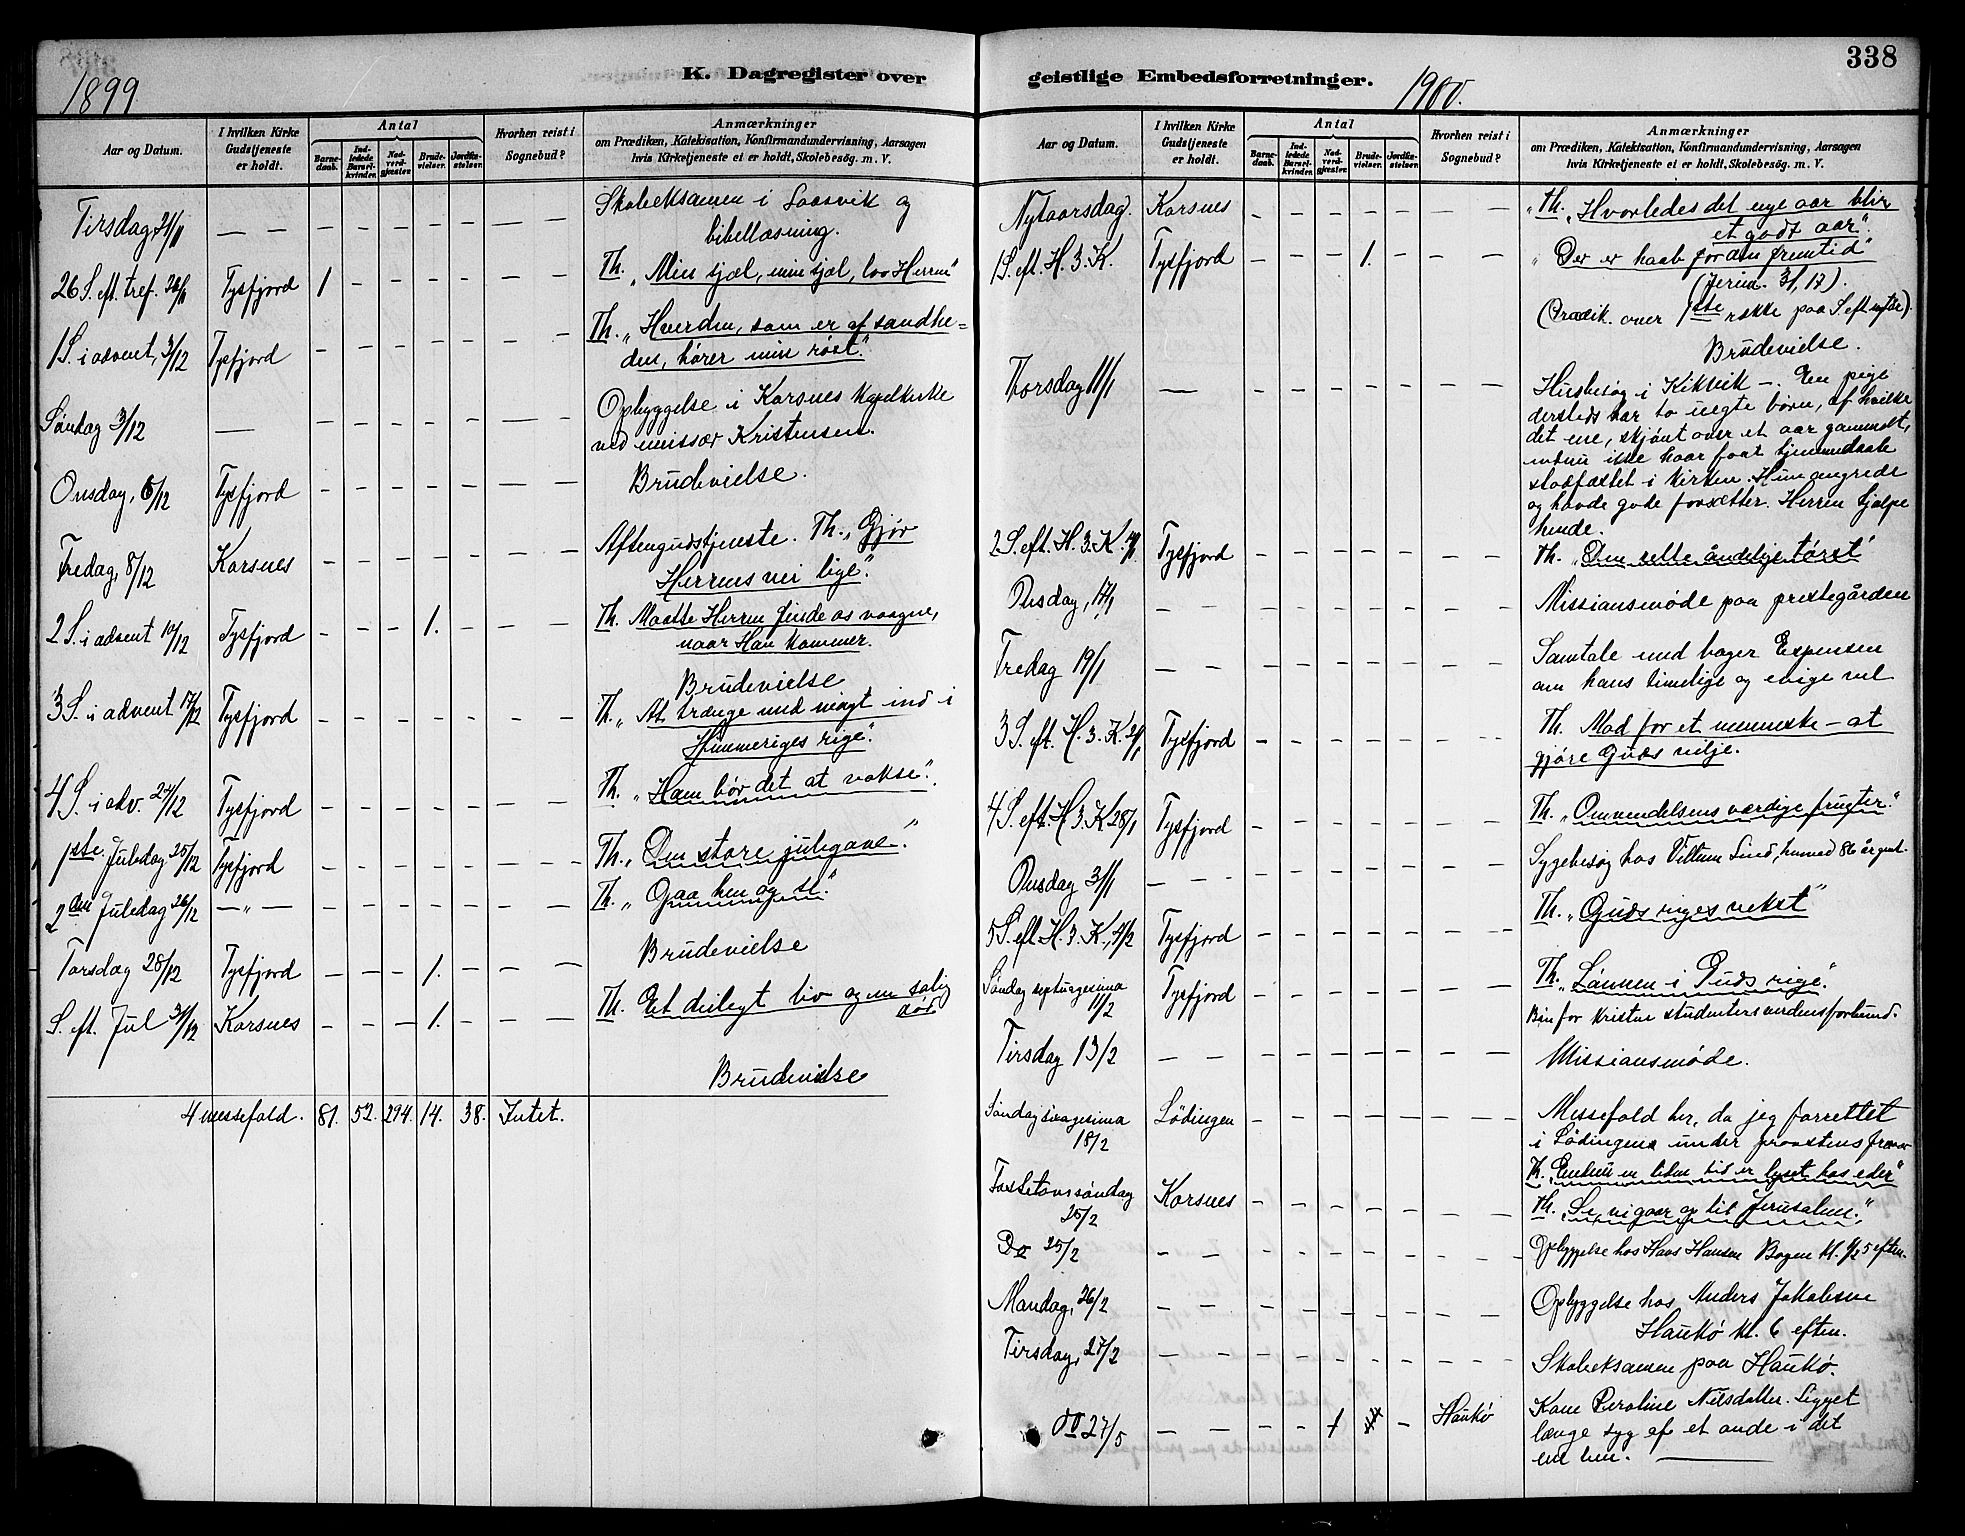 338
K. Dagregister over geistlige Embedsforretninger.
1899
Aar og Datum.
I hvilken Kirke
Gudstjeneste
er holdt.
Antal
Barne-
daab.
Ind-
ledede
Barsel-
kvinder.
Nad-
verd-
gjæster.
Brude-
vielser.
Jordfæ-
stelser.
Hvorhen reist i
Sognebud?
Anmærkninger
om Prædiken, Katekisation, Konfirmandundervisning, Aarsagen
hvis Kirketjeneste ei er holdt, Skolebesøg. m. V.
Tirsdag, 21/11 — — — — — — — — Skoleeksamen i Laasvik og
bibellæsning.
26 S. eft. tref. 26/11 Tysfjord 1 — — — — — — Th. „Min sjæl, min sjæl, lov Herren"
1 S. i advent, 3/12 Tysfjord — — — — — — — Th. „Hver den, som er af sandhe=
den, hører min røst."
Søndag 3/12 — — — — — — — — Opbyggelse i Korsnes kapelkirke
ved emissær Kristensen.
Onsdag, 6/12 Tysfjord — — — — — — — Brudevielse.
Fredag, 8/12 Korsnes — — — — — — — Aftengudstjeneste. Th. „Gjør
Herrens vei lige".
2 S. i advent 10/12 Tysfjord — — — 1. — — — Th. Maatte Herren finde os vaagne,
naar Han kommer.
Brudevielse
3 S. i advent 17/12 Tysfjord — — — — — — — Th. „At trænge med magt ind i
Himmeriges rige".
4 S. i adv. 24/12 Tysfjord — — — — — — — Th. „Ham bør det at vokse".
1ste Juledag 25/12 Tysfjord — — — — — — — Th. „Den store julegave".
2den Juledag 26/12 — „ — — — — — — — — Th. „Gaa hen og se."
Torsdag 28/12 Tysfjord — — — 1. — — — Brudevielse
S. eft. Jul 31/12 Korsnes — — — 1. — — — Th. Et deiligt liv og en salig
død
Brudevielse
4 messefald. 81. 52. 294. 14. 38. Intet.
1900.
Aar og Datum.
I hvilken Kirke
Gudstjeneste
er holdt.
Antal
Barne-
daab.
Ind-
ledede
Barsel-
kvinder.
Nad-
verd-
gjæster.
Brude-
vielser.
Jordfæ-
stelser.
Hvorhen reist i
Sognebud?
Anmærkninger
om Prædiken, Katekisation, Konfirmandundervisning, Aarsagen
hvis Kirketjeneste ei er holdt, Skolebesøg. m. V.
Nytaarsdag. Korsnes — — — — — — — Th. „Hvorledes det nye aar blir
et godt aar".
1 S. eft. H. 3. K. Tysfjord — — — 1. — — — „Der er haab for din fremtid"
(Jerem. 31, 17).
(Prædik. over 1ste række paa S. eft nytår).
Brudevielse.
Thorsdag 11/1 — — — — — — — — Husbesøg i Kiksvik —. En pige
dersteds har to uegte børn, af hvilke
det ene, skjønt over et aar gammelt,
endnu ikke har faat hjemmedaab
stadfæstet i kirken. Hun angrede
og havde gode forsætter. Herren hjælpe
hende.
2 S. eft. H. 3. K. 14/1 Tysfjord — — — — — — — Th. „Den rette åndelige tørst"
Onsdag, 17/1 — — — — — — — — Missionsmøde paa prestegården
Fredag 19/1 — — — — — — — — Samtale med bager Espensen
om hans timelige og evige vel
3 S. eft. H. 3. K. 21/1 Tysfjord — — — — — — — Th. Mad for et menneske — at
gjøre Guds vilje.
4 S. eft. H. 3. K 28/1 Tysfjord — — — — — — — Th. „Omvendelsens værdige frugter."
Onsdag 31/1 — — — — — — — — Sygebesøg hos Villum Lind, henved 86 år gml.
5 S. eft. H. 3. K., 4/2 Tysfjord — — — — — — — Th. „Guds riges vekst"
Søndag septuagesima
11/2 Tysfjord — — — — — — — Th. „Lønnen i Guds rige".
Bøn for kristne studenters verdensforbund.
Tirsdag 13/2 — — — — — — — — Missionsmøde.
Søndag sexagesima
18/2 Lødingen — — — — — — — Messefald her, da jeg forrettet
i Lødingen under provstens
Th. „Endnu en liden tid er lyset hos eder"
Fastelavnssøndag
25/2 Korsnes — — — — — — — Th. „Se, vi gaar op til Jerusalem."
Do 25/2 — — — — — — — — Opbyggelse hos Hans Hansen Bogen kl. 1/2 5 eften.
Mandag, 26/2 — — — — — — — — Opbyggelse hos Anders Jakobsen
Haukø kl. 6 eften.
Tirsdag, 27/2 — — — — — — — — Skoleeksamen paa Haukø.
do 27/5 — — — — 1 — Haukø Kone Peroline Nilsdatter. Ligget
længe syg af et onde i det
ene ben. —